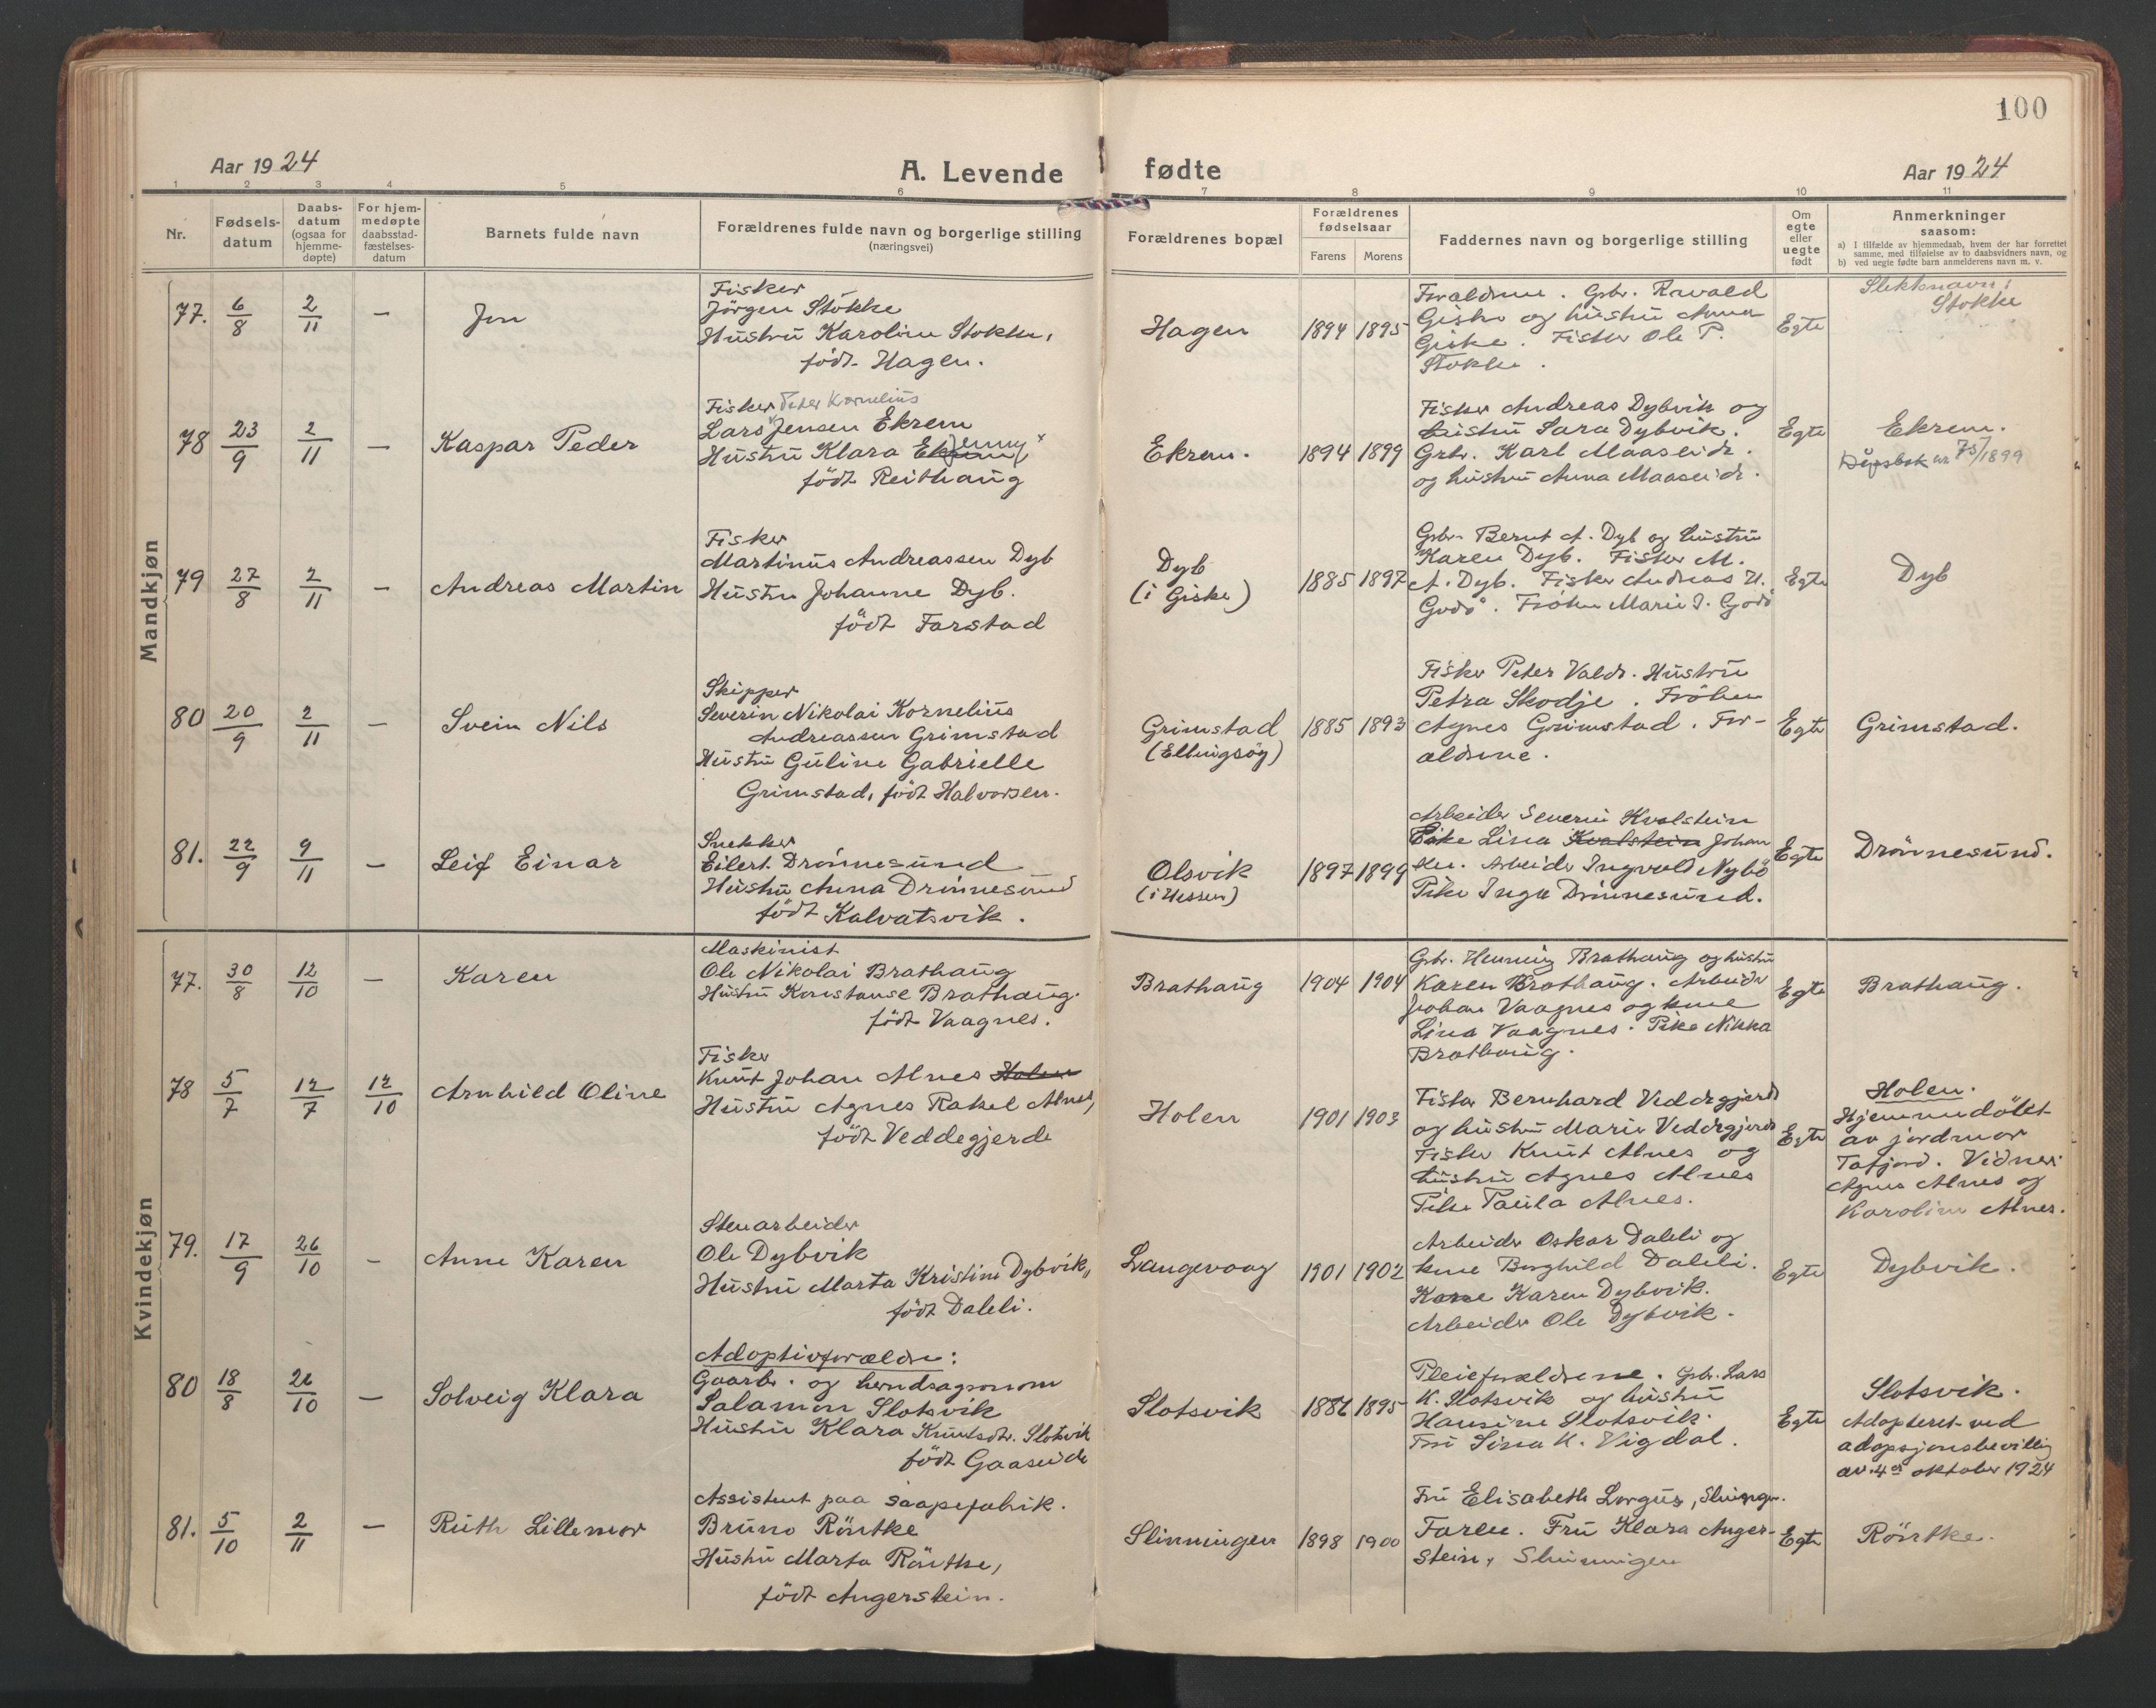 100
Aar 1924
A. Levende fødte
Aar 1924
1 2 3 4 5 6 7 8 9 10 11
Nr.
Fødsels-
datum
Daabs-
datum
(ogsaa for
hjemme-
døpte)
For hjem-
medøpte
daabsstad-
fæstelses-
datum
Barnets fulde navn
Forældrenes fulde navn og borgerlige stilling
(næringsvei)
Forældrenes bopæl
Forældrenes
fødselsaar
Farens Morens
Faddernes navn og borgerlige stilling
Om
egte
eller
uegte
født
Anmerkninger
saasom:
a) I tilfælde av hjemmedaab, hvem der har forrettet
samme, med tilføielse av to daabsvidners navn, og
b) ved uegte fødte barn anmelderens navn m. v.
Mandkjøn
77. 6/8 2/11 —
Jon
Fisker
Jörgen Stokke
Hustru Karoline Stokke,
födt Hagen.
Hagen 1894 1895
Forældrene. Gbr. Ravald
Giske og hustru Anna
Giske. Fisker Ole P.
Stokke.
Egte
Slektsnavn:
Stokke
78 23/9 2/11 —
Kaspar Peder
Fisker Peter Kornelius
Lars Jensen Ekrem
Hustru Klara Ekrem Jenny x
födt Reithaug
Ekrem. 1894 1899
Fisker Andreas Dybvik og
hustru Sara Dybvik.
Gbr. Karl Maaseide.
og hustru Anna Maaseide.
Egte
Ekrem.
Dåpsbok nr 75/1899
79 27/8 2/11 —
Andreas Martin
Fisker
Martinus Andreassen Dyb
Hustru Johanne Dyb.
födt Farstad
Dyb
(i Giske)
1885 1897
Gbr. Bernt A. Dyb og hustru
Karen Dyb. Fisker M.
A. Dyb. Fisker Andreas H.
Godö. Fröken Marie J. Godö
Egte
Dyb
80 20/9 2/11 —
Svein Nils
Skipper
Severin Nikolai Kornelius
Andreassen Grimstad
Hustru Guline Gabrielle
Grimstad, födt Halvorsen.
Grimstad
(Ellingsöy)
1885 1893
Fisker Peter Valde. Hustru
Petra Skodje. Fröken
Agnes Grimstad. For-
ældrene.
Egte
Grimstad.
81. 22/9 9/11 —
Leif Einar
Snekker
Eilert Drönnesund
Hustru Anna Drönnesund
födt Kalvatsvik.
Olsvik
(i Hessen)
1897 1899
Arbeider Severin Kvalstein
Pike Lina Kvalstein Johan
sen. Arbeider Ingvald Nybö
Pike Inga Drönnesund.
Egte
Drönnesund.
Kvindekjøn
77. 30/8 12/10 —
Karen
Maskinist
Ole Nikolai Brathaug
Hustru Konstanse Brathaug.
födt Vaagnes.
Brathaug 1904 1904
Gbr. Henning Brathaug og hustru
Karen Brathaug. Arbeider
Johan Vaagnes og kone
Lina Vaagnes. Pike Nikka
Brathaug.
Egte
Brathaug.
78 5/7 12/7 12/10
Arnhild Oline
Fisker
Knut Johan Alnes Holen
Hustru Agnes Rakel Alnes,
födt Veddegjerde
Holen 1901 1903
Fisker Bernhard Veddegjerde
og hustru Marie Veddegjerde
Fisker Knut Alnes og
hustru Agnes Alnes
Pike Paula Alnes.
Egte
Holen.
Hjemmedöbt
av jordmor
Tafjord. Vidner:
Agnes Alnes og
Karoline Alnes.
79. 17/9 26/10 —
Anne Karen
Stenarbeider
Ole Dybvik
Hustru Marta Kristine Dybvik,
födt Daleli.
Langevaag 1901 1902
Arbeider Oskar Daleli og
kone Borghild Daleli.
Kone Karen Dybvik.
Arbeider Ole Dybvik.
Egte
Dybvik.
80 18/8 26/10 —
Solveig Klara
Adoptivforældre:
Gaardbr. og herredsagronom
Salamon Slotsvik
Hustru Klara Knutsdtr. Slotsvik
födt Gaaseide
Slotsvik 1886 1895
Pleieforældrene. Gbr. Lars
K. Slotsvik og hustru
Hansine Slotsvik.
Fru Sina K. Vigdal.
Egte
Slotsvik.
Adopteret ved
adopsjonsbevilling
av 4de oktober 1924
81. 5/10 2/11 —
Ruth Lillemor
Assistent paa saapefabrik.
Bruno Röntke
Hustru Marta Röntke,
födt Angerstein.
Slinningen 1898 1900
Fru Elisabeth Lorgus,
Faren. Fru Klara Anger-
stein, Slinningen
Egte
Röntke.